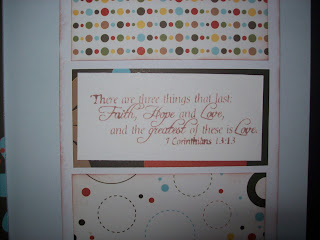 There are three things that last:
Faith, Hope and Love,
and the greatest of these is Love.
1 Corinthians 13:13